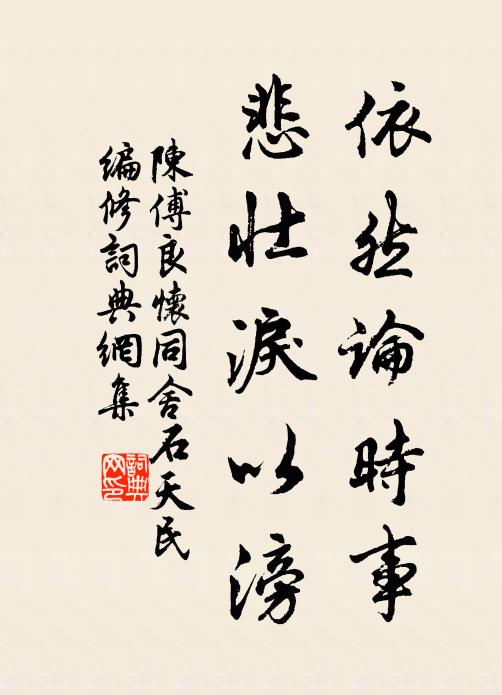 依然論時事
悲壯淚以滂
陳傅良懷同舍石天民
編修詞典網集
詞典網印